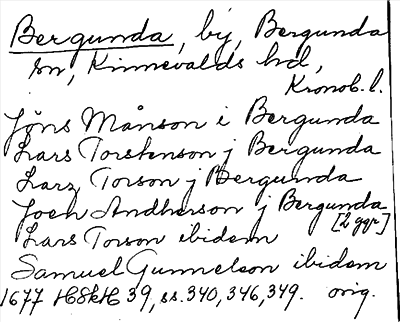 Bergunda, by, Bergunda
sn, Kinnevalds hd,
Kronob. l.
Jöns Månson i Bergunda
Lars Torstenson j Bergunda
Larz Torson j Bergunda
Joen Andherson j Bergunda
[2 ggr]
Lars Torson ibidem
Samuel Gunnelson ibidem
1677 HSkH 39, ss. 340, 346, 349. orig.